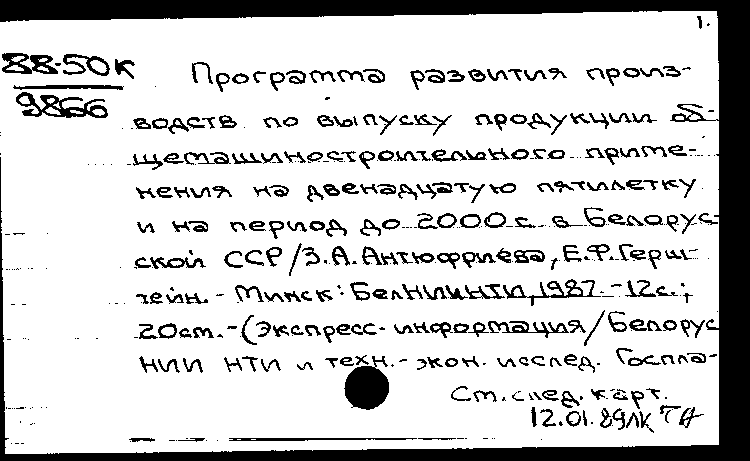 1.
88-50К
9866
Программа развития произ-
водств по выпуску продукции об-
щемашиностроительного приме-
нения на двенадцатую пятилетку
и на период до 2000 г. в Белорус-
ской ССР / З.А. Антюфриева, Е.Ф. Герш-
тейн. - Минск: БелНИИНТИ, 1987. - 12с.;
20см. - (Экспресс-информация / Белорус
НИИ НТИ и техн.-экон. исслед. Госпла-
См. след. карт.
12.01.89ЛК